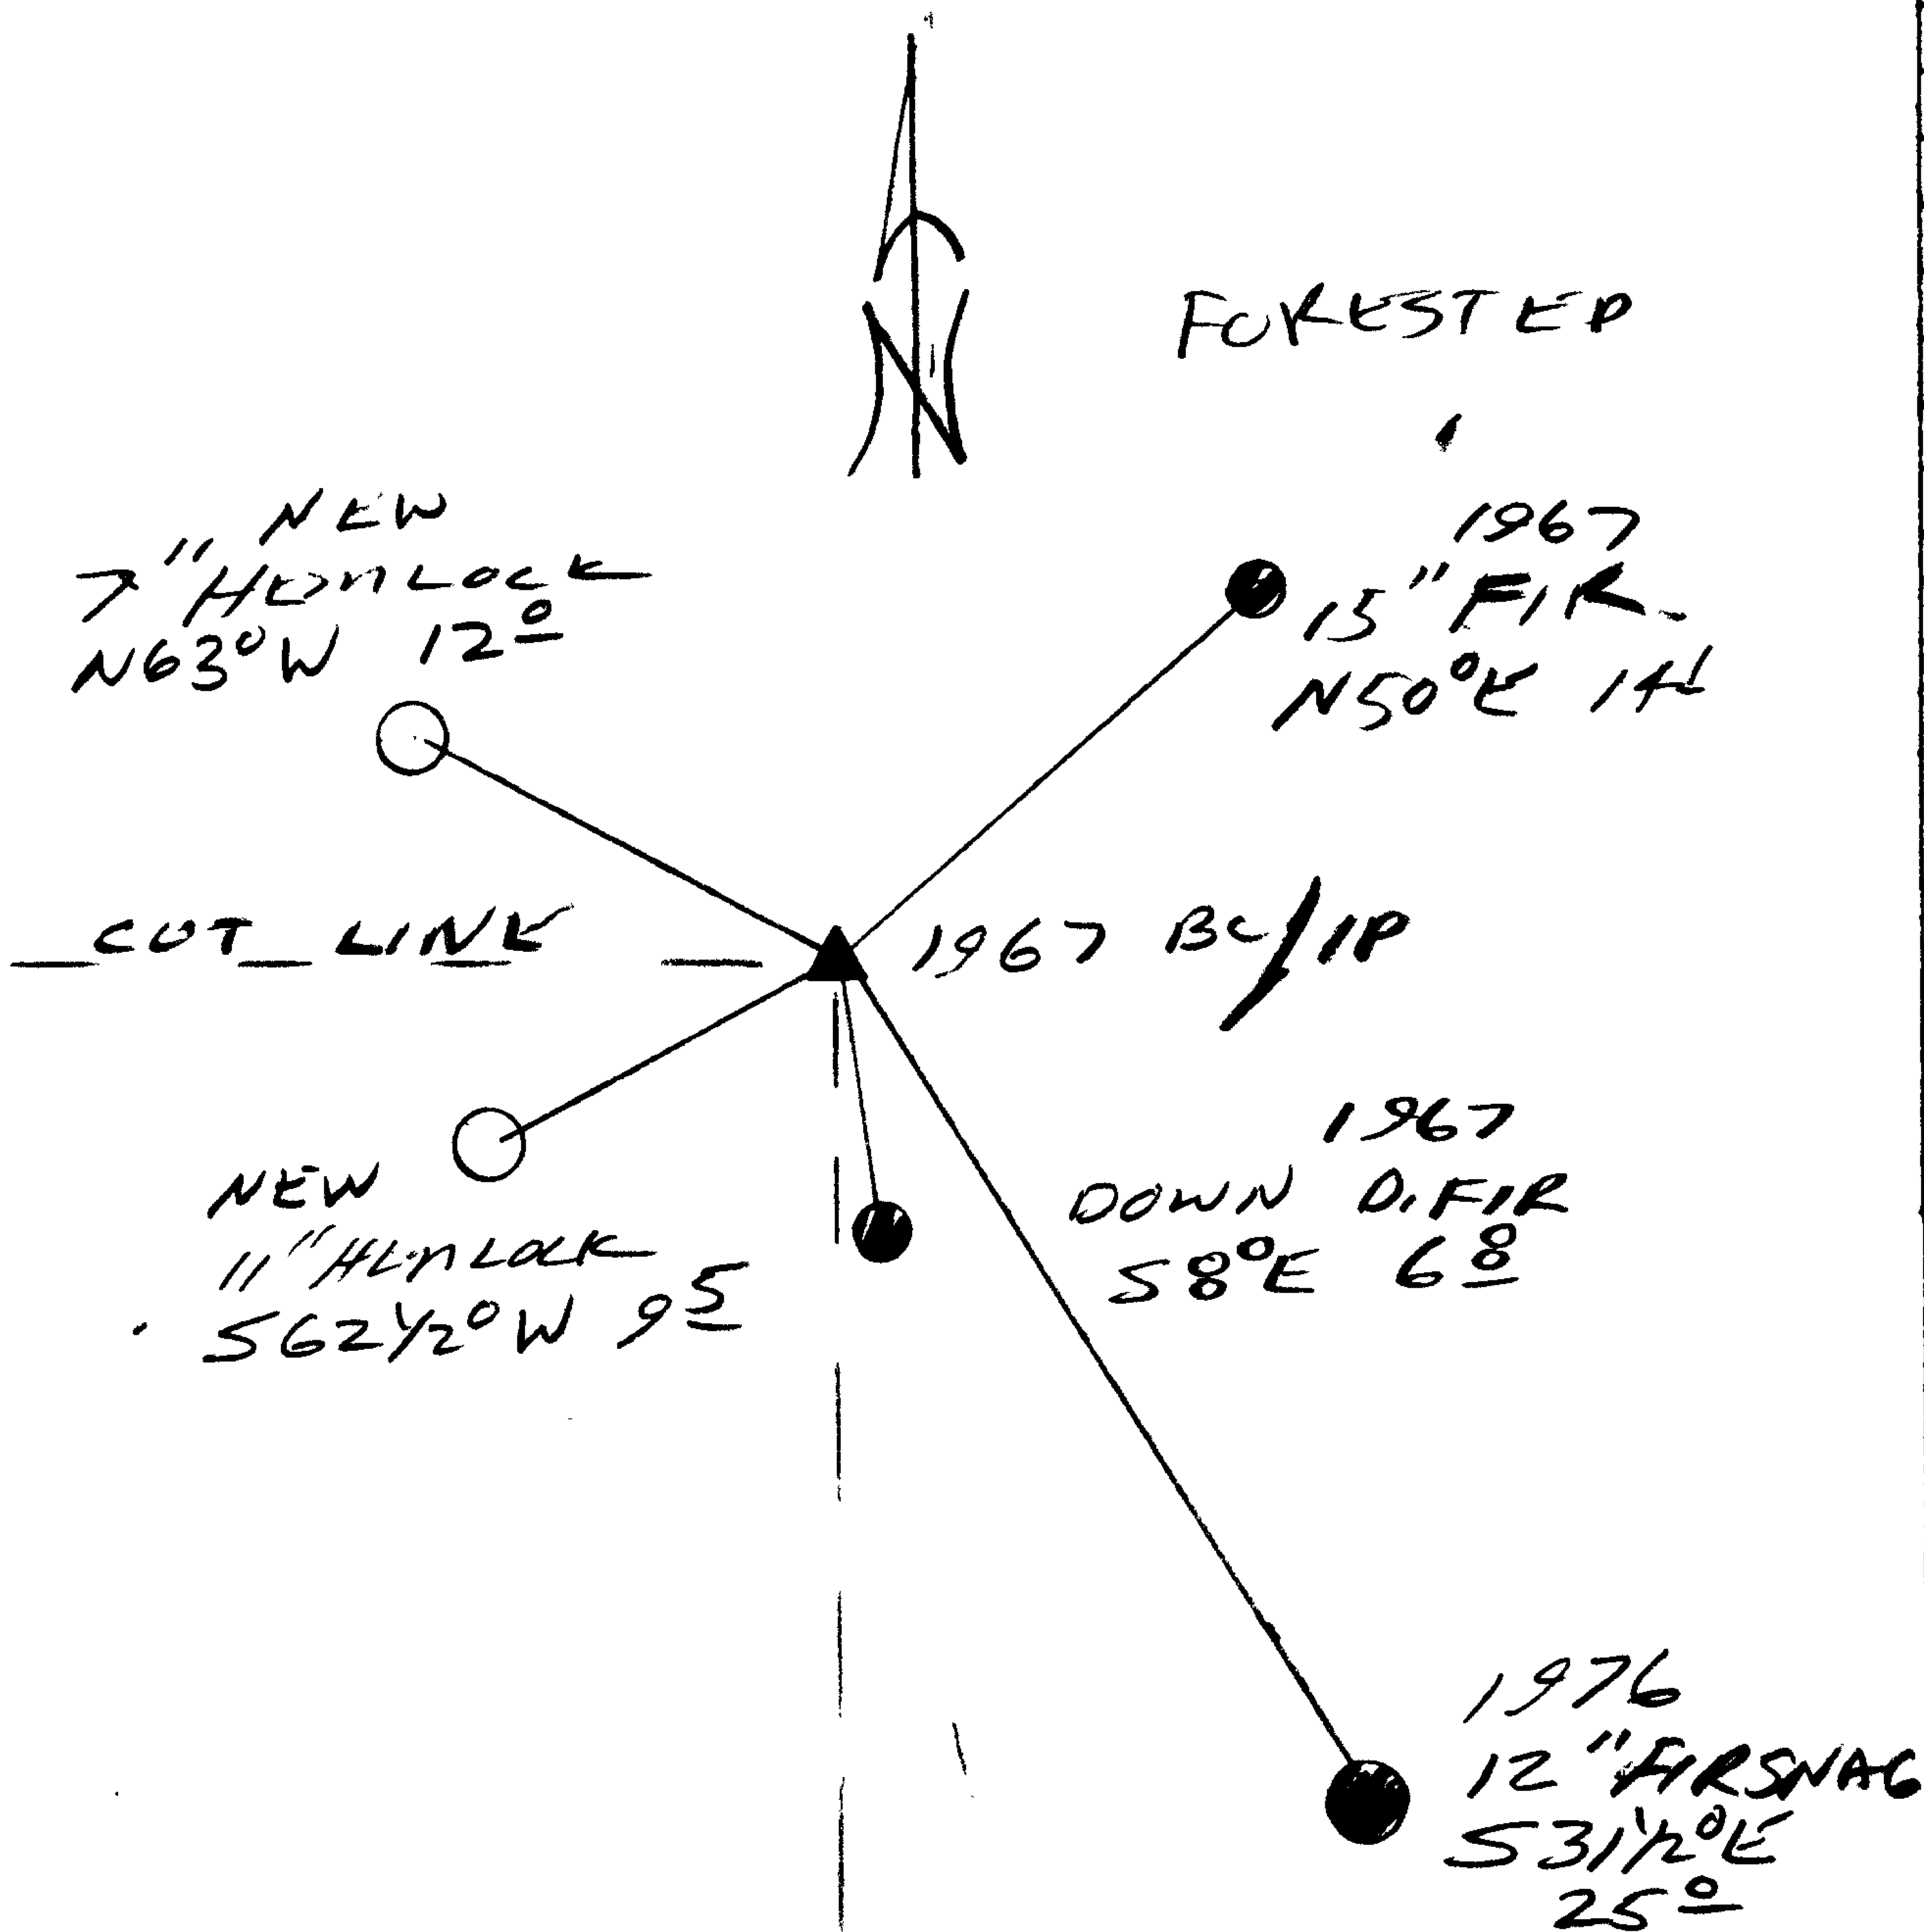 N
FORESTED
NEW
7" HEMLOCK
N63°W 12⁰
1967
15" FIR
N50°E 14¹
CUT LINE
1967 BC/IP
NEW
11" HEMLOCK
S62½°W 9⁵
1967
DOWN D.FIR
S8°E 6⁸
1976
12" FIR SNAG
S31½°E
25⁰